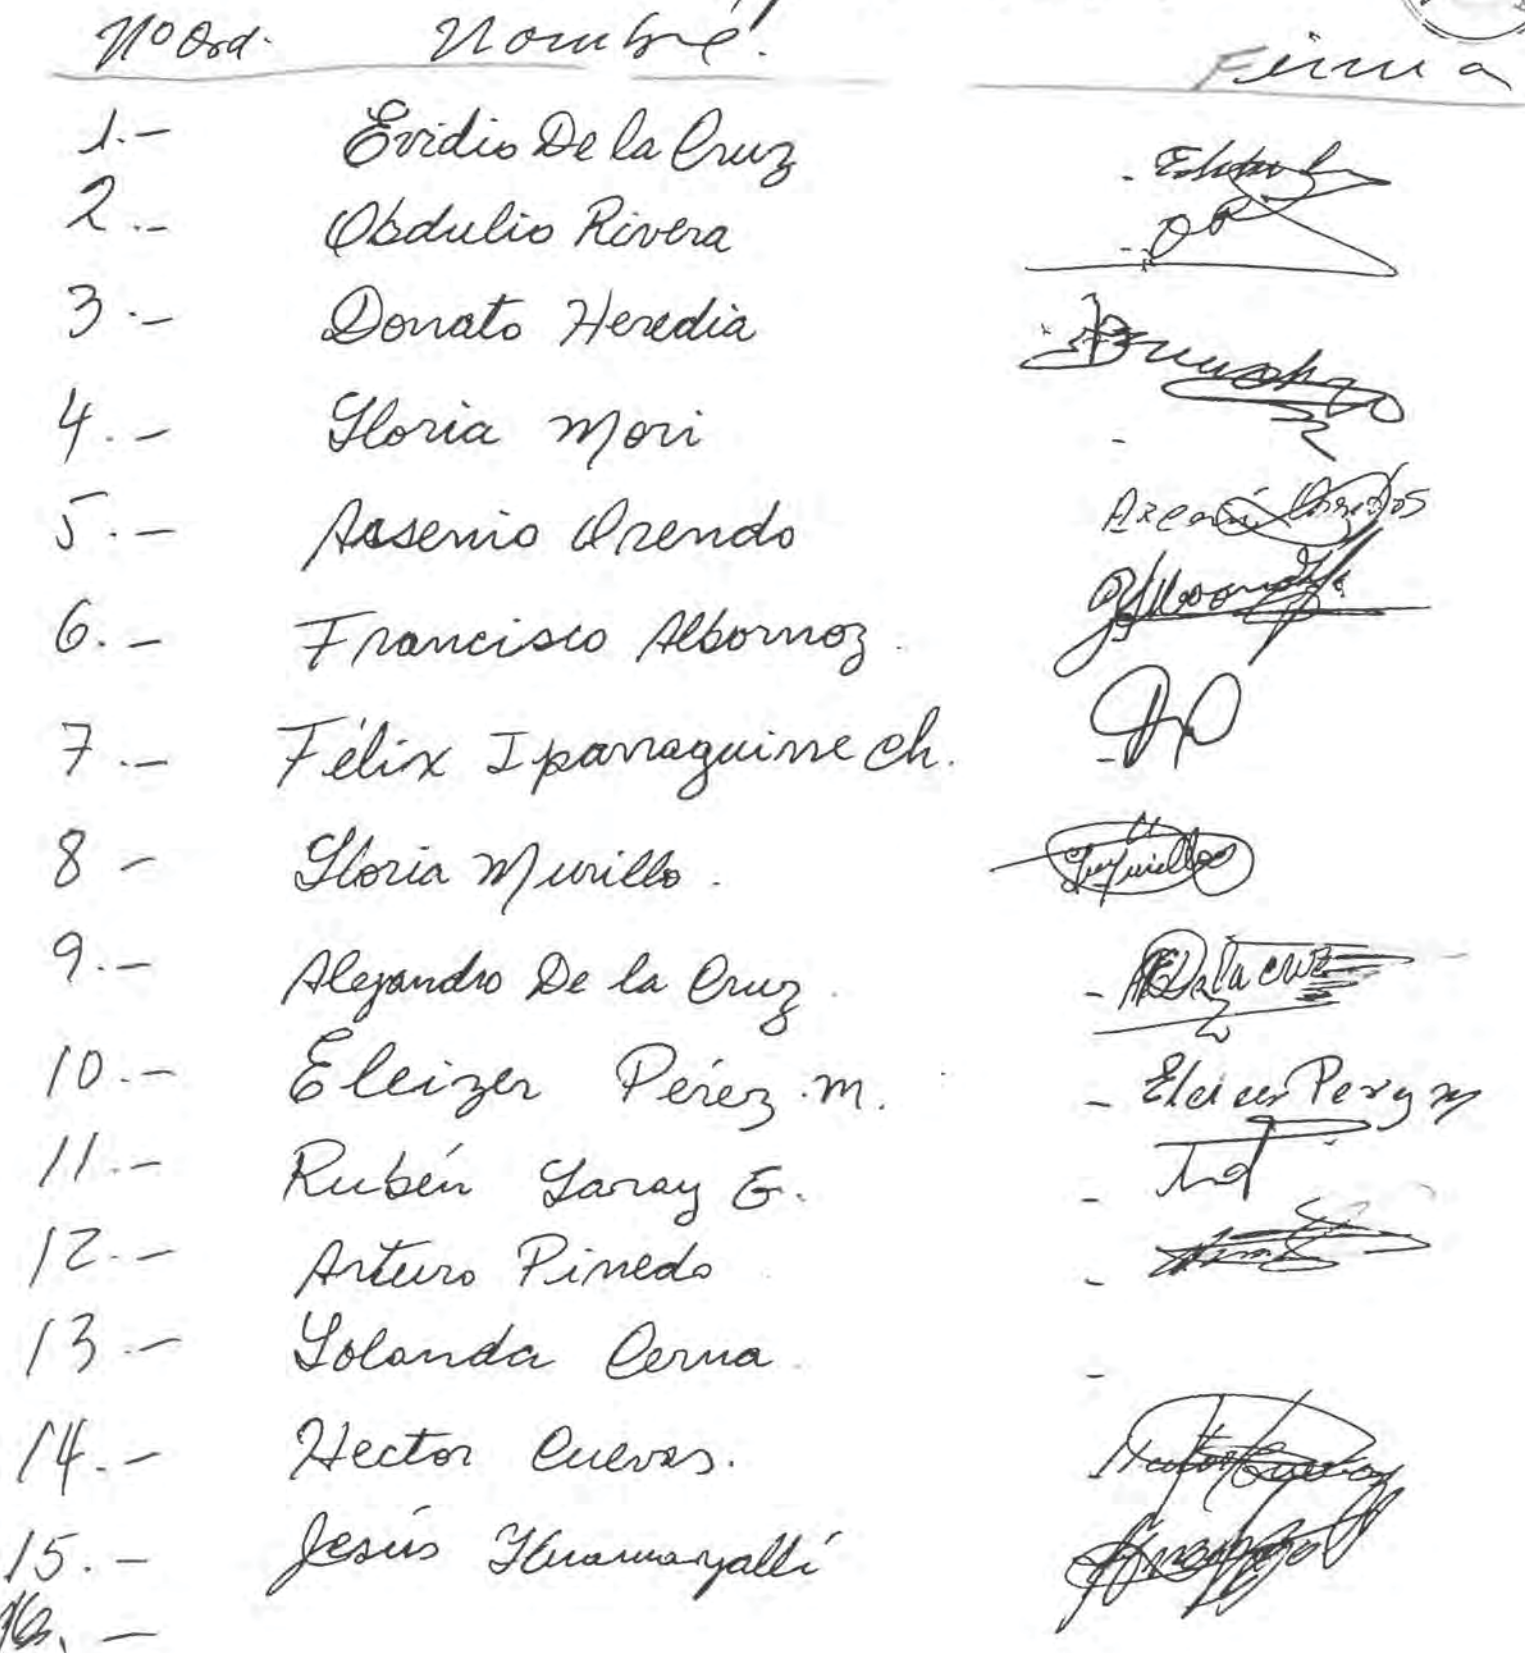 Nº Ord. Nombre. Firma
1.- Evidio De la Cruz
2.- Obdulio Rivera
3.- Donato Heredia
4.- Gloria Mori -
5.- Assenio Orendo
6.- Francisco Albornoz.
7.- Félix Iparraguirre Ch.
8 - Gloria Murillo. Murillo
9.- Alejandro De la Cruz - De la cruz
10.- Eleizer Pérez M. - Eleicer Perez M
11.- Rubén Garay G. -
12.- Arturo Pinedo -
13.- Yolanda Cerna -
14.- Hector Cuevas.
15.- Jesús Huamanyallí
16.-